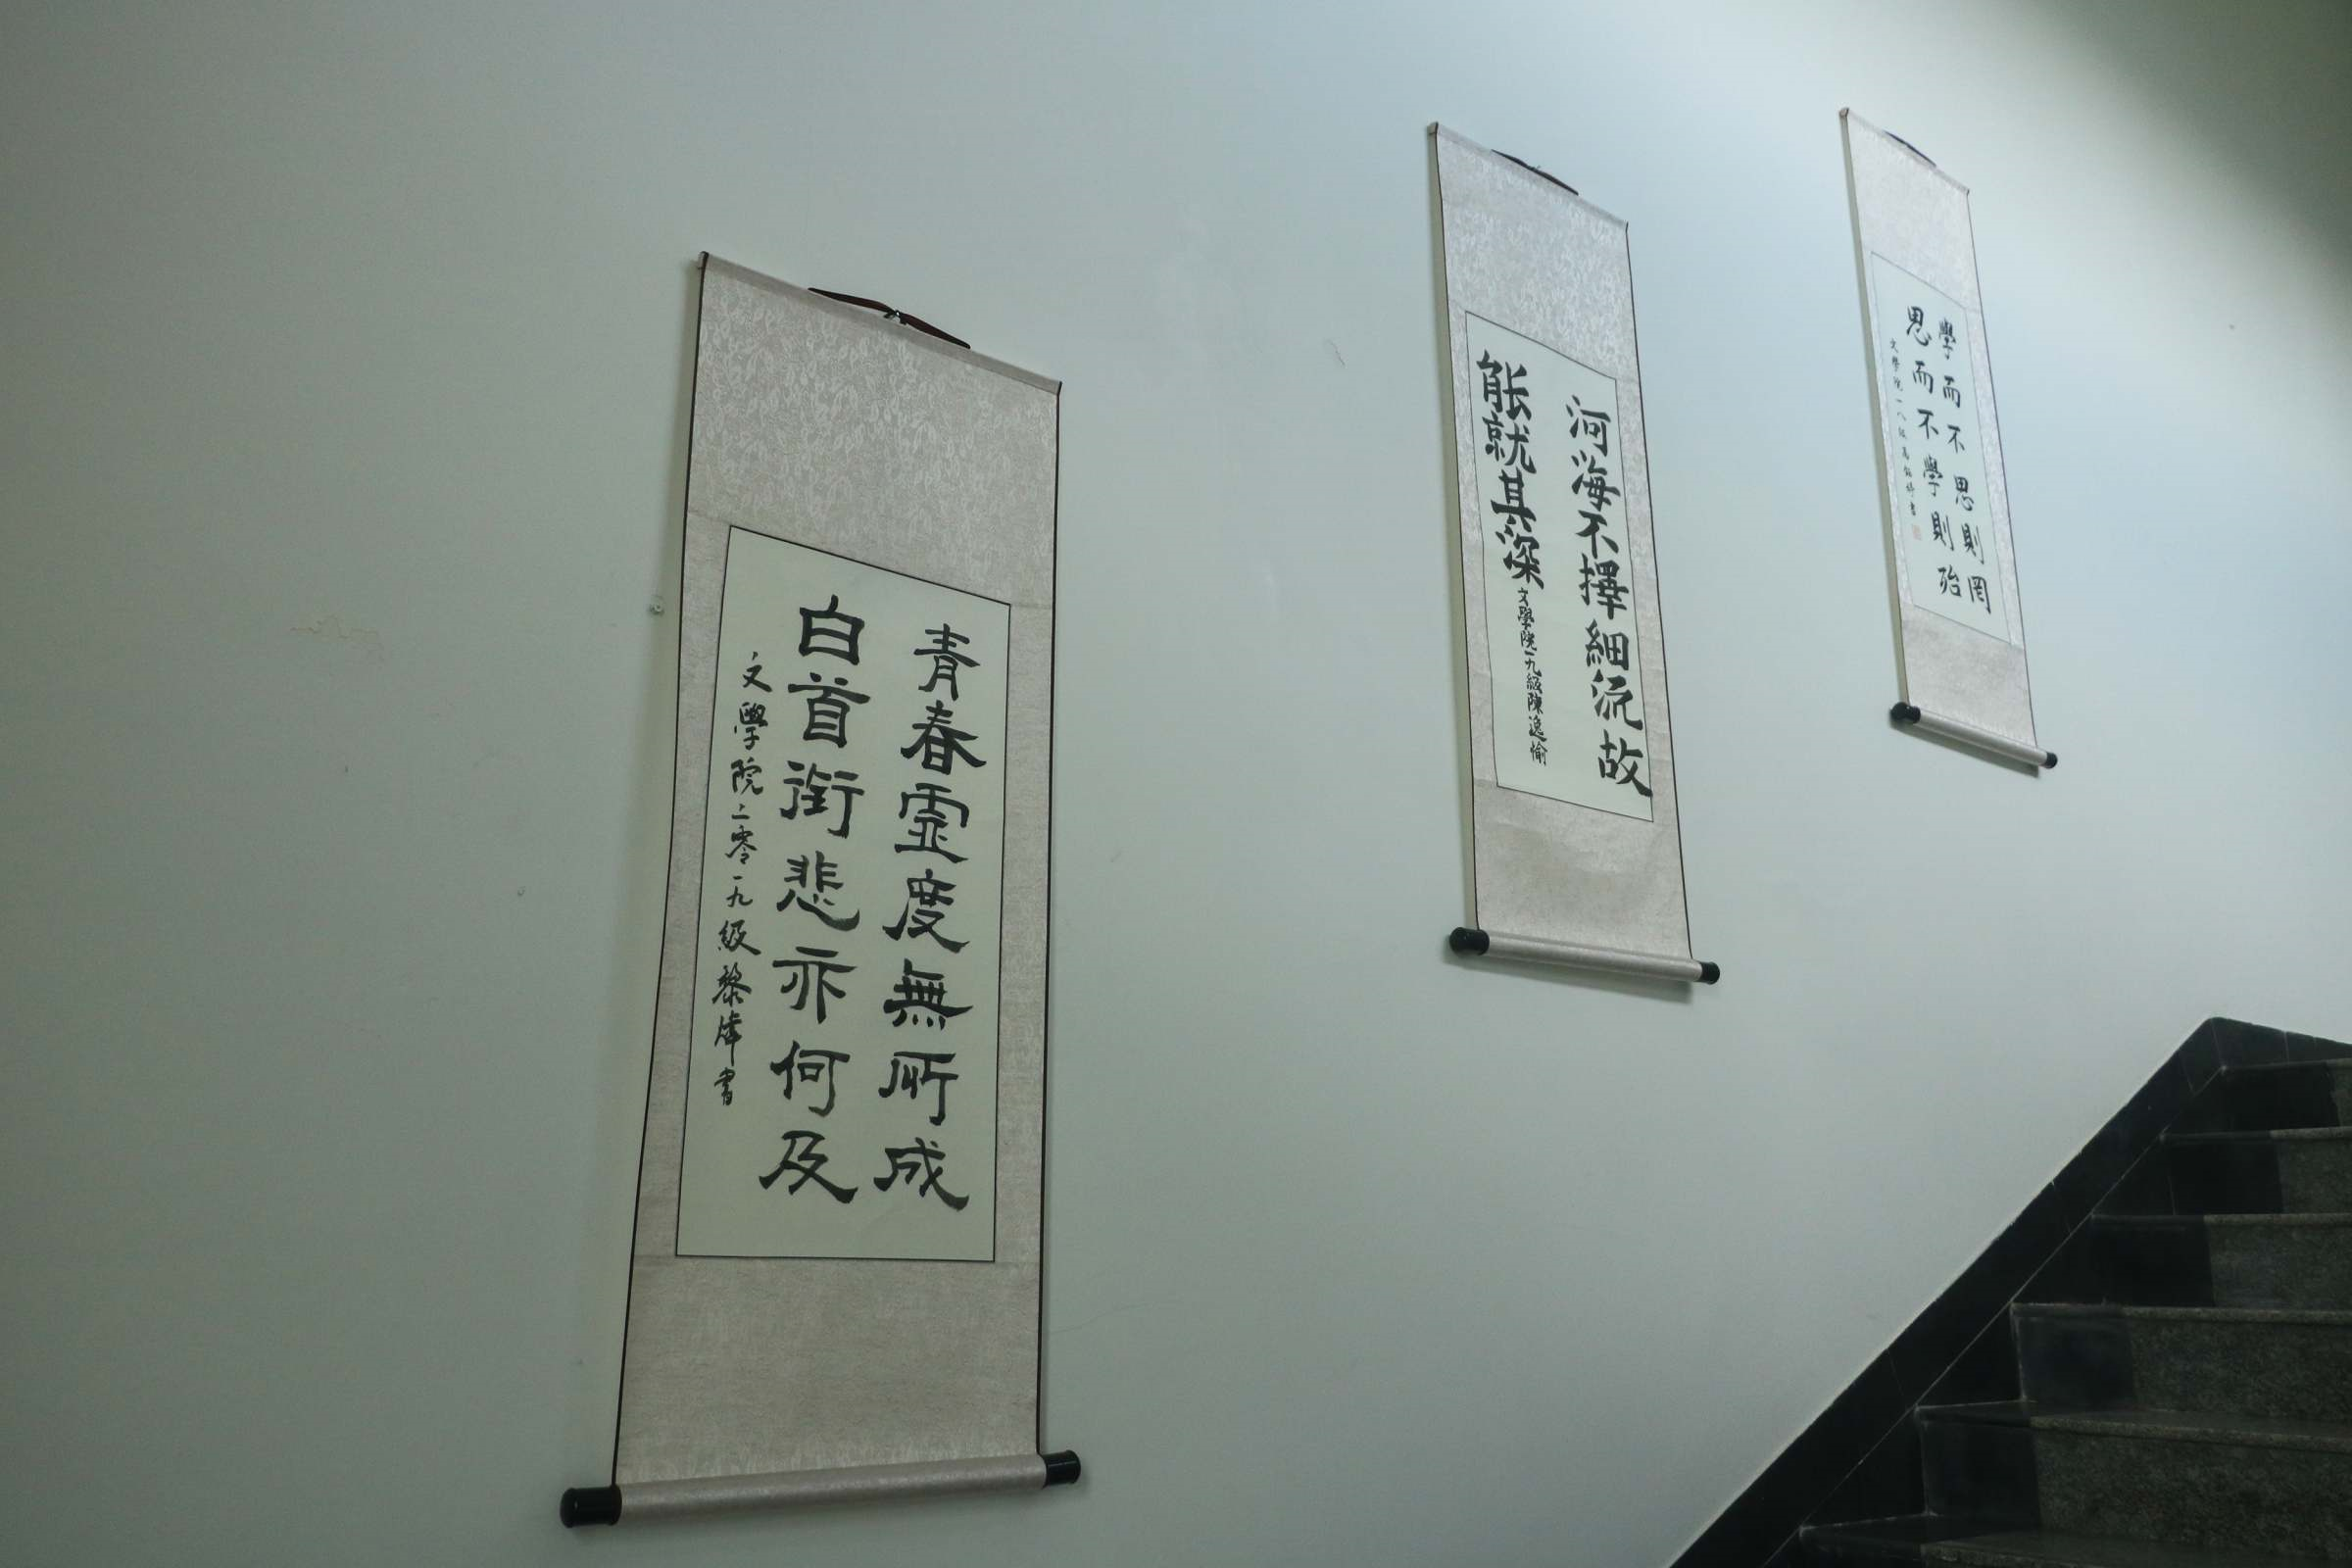 青春虛度無所成
白首銜悲亦何及
文學院二零一九級黎煒書
河海不擇細流故
能就其深
文學院一九級陳逸愉
學而不思則罔
思而不學則殆
文學院一八級